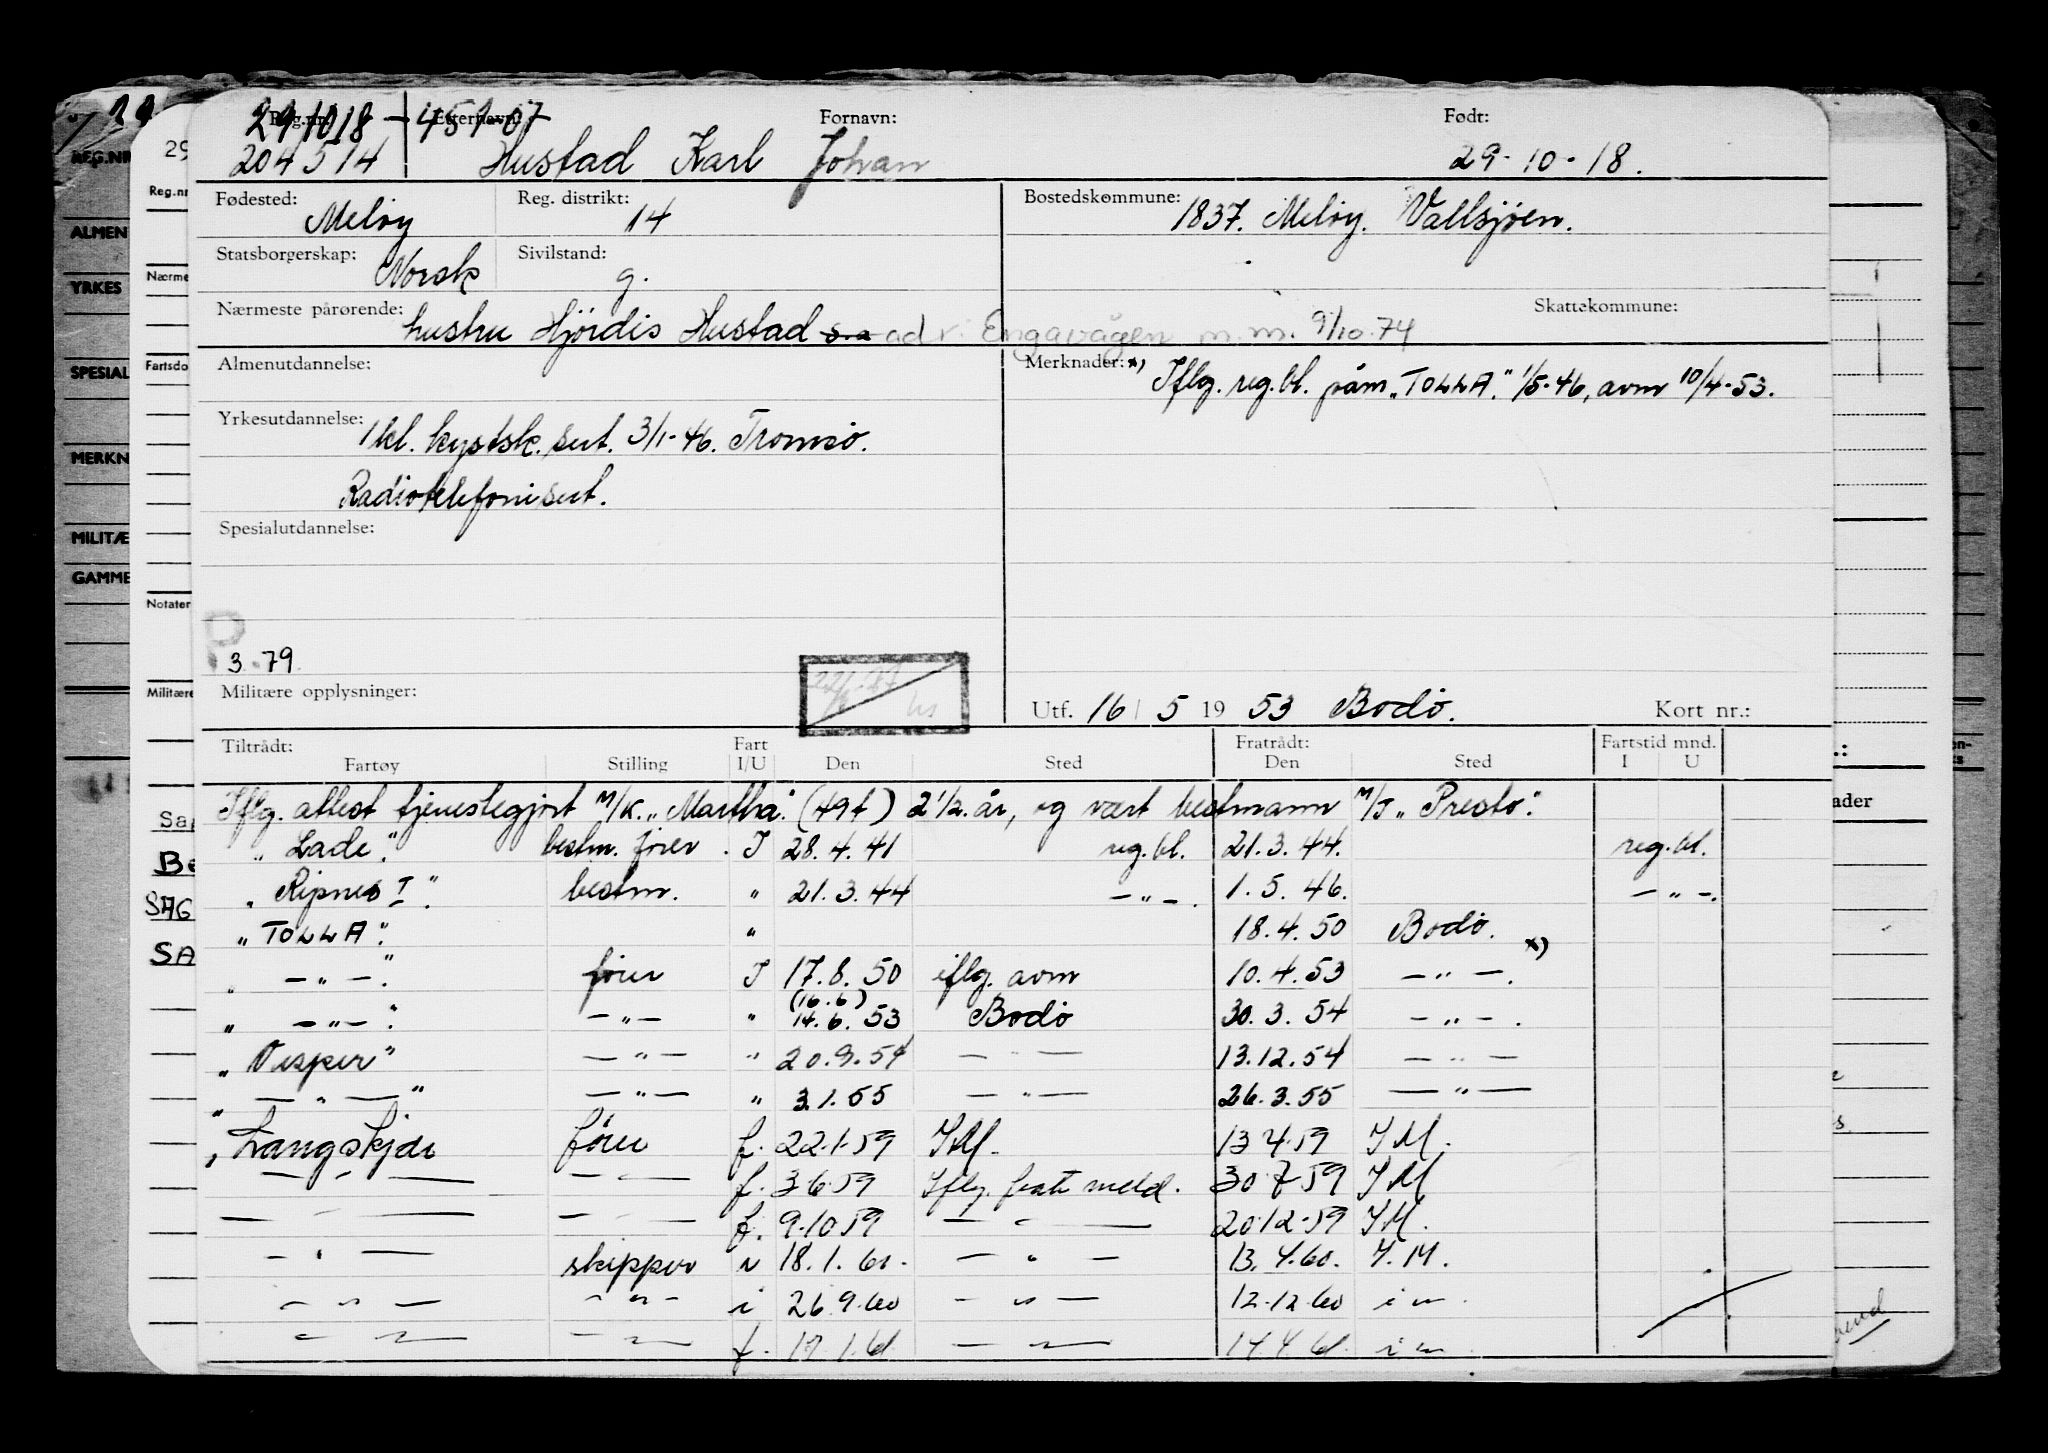 Reg.nr. Etternavn: Fornavn: Født:
291018 - 451-07
204514 Hustad Karl Johan 29-10-18.
Fødested: Meløy Reg. distrikt: 14 Bostedskommune: 1837. Meløy. Vallsjøen.
Statsborgerskap: Norsk Sivilstand: g.
Nærmeste pårørende: hustru Hjørdis Hustad s.a adr: Engavågen m.m. 9/10.74 Skattekommune:
Almenutdannelse: Merknader: x) Iflg. reg.bl. påm. "TOLLA". 1/5-46, avm 10/4-53.
Yrkesutdannelse: 1 kl. kystsk. sert. 3/1-46. Tromsø.
Radiotelefonisert.
Spesialutdannelse:
P
3.79.
Militære opplysninger: Utf. 16/5 1953 Bodø. Kort nr.:
Tiltrådt: Fart Fratrådt: Fartstid mnd.
Fartøy Stilling I/U Den Sted Den Sted I U
Iflg. attest tjenestegjort M/K. "Martha". (49t) 2 1/2 år, og vært bestmann M/J "Presto".
" Lade". bestm. fører. I 28.4.41 reg.bl. 21.3.44. reg.bl.
" Ripnes I". bestm. " 21.3.44 - " -. 1.5.46. - " -.
" TOLLA". " 18.4.50 Bodø.
" - " -." fører I 17.8.50 iflg. avm 10.4.53 - " -. x)
(16.6)
" - " -". - " - " 14.6.53 Bodø 30.3.54 - " -.
" Vesper" - " - " 20.9.54 - " - 13.12.54 - " -
" - " - " - " - " 3.1.55 - " - 26.3.55 - " -
" Langskjær fører f. 22.1.59 IM. 13.4.59 IM.
- " - - " - f. 3.6.59 Iflg. fratr meld. 30.7.59 IM
- " - - " - f. 9.10.59 - " - 20.12.59 IM.
- " - skipper i 18.1.60. - " - 13.4.60. I.M.
- " - - " - i 26.9.60 - " - 12.12.60 i m.
- " - - " - f. 17.1.61 - " - 14.4.61. i m.